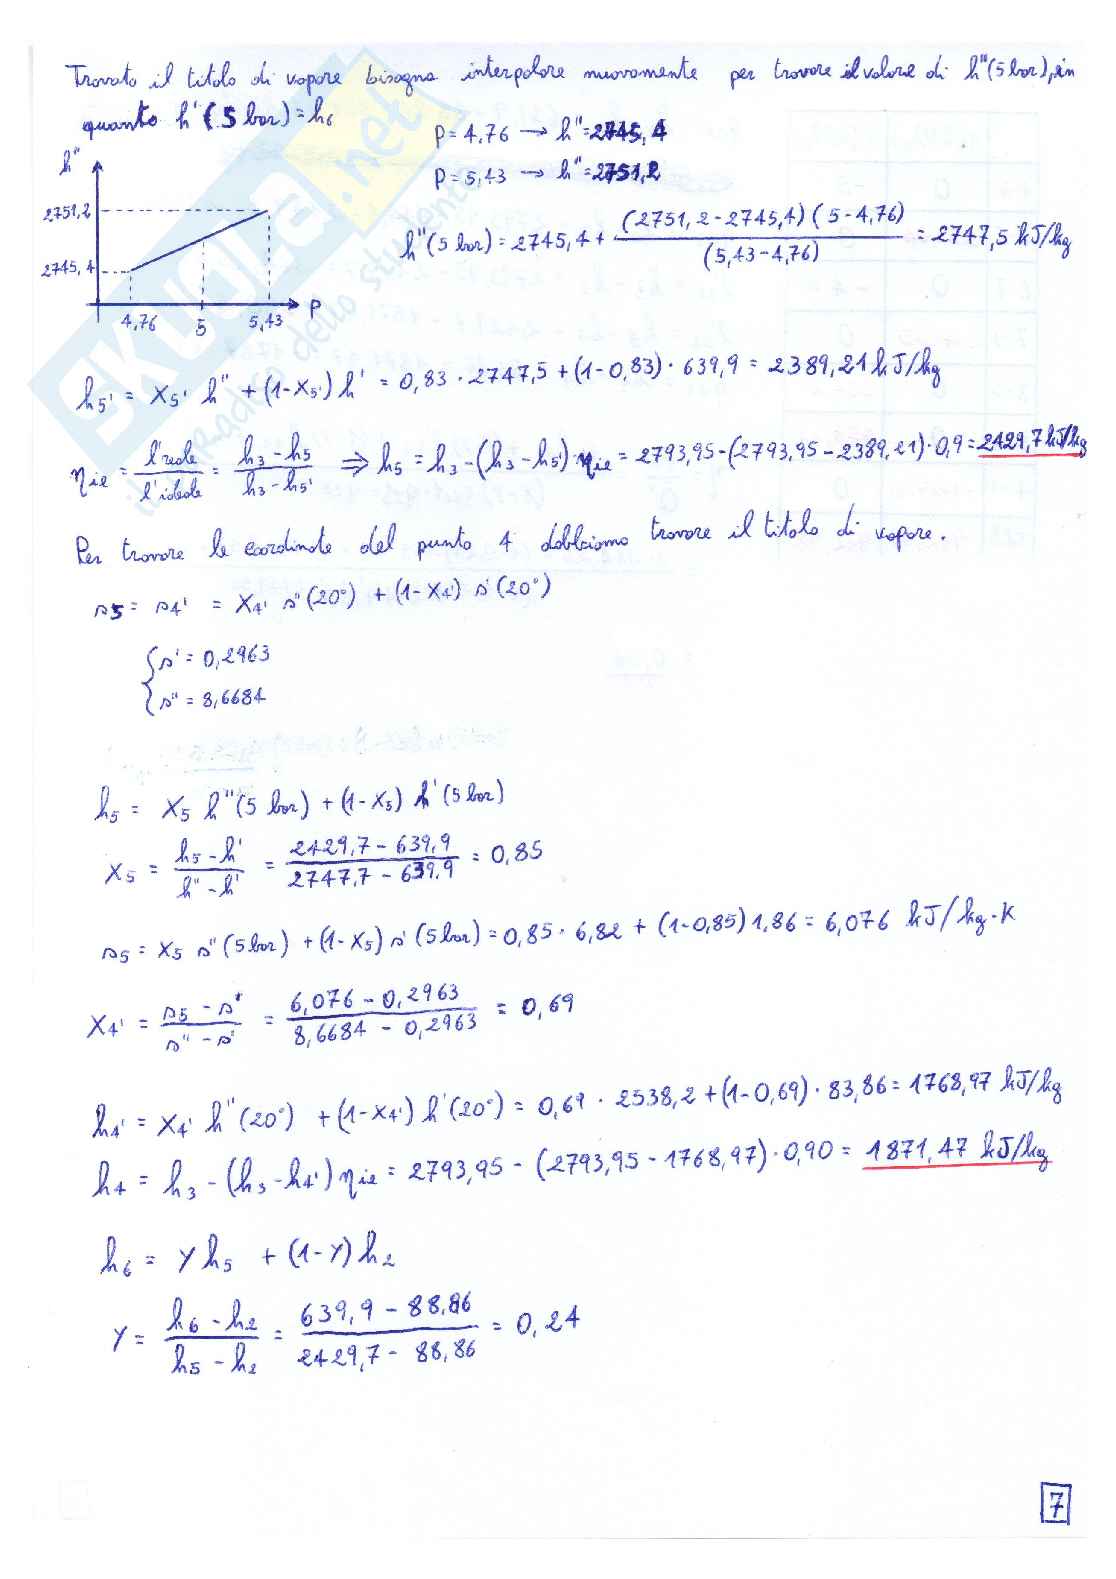 Trovato il titolo di vapore bisogna interpolare nuovamente per trovare il valore di h''(5 bar), in
quanto h'(5 bar) = h6
p = 4,76 → h'' = 2745,4
p = 5,43 → h'' = 2751,2
h''
2751,2
2745,4
4,76 5 5,43 p
h''(5 bar) = 2745,4 + (2751,2 - 2745,4)(5 - 4,76) / (5,43 - 4,76) = 2747,5 kJ/kg
h5' = x5' h'' + (1-x5') h' = 0,83 · 2747,5 + (1-0,83) · 639,9 = 2389,21 kJ/kg
ηie = l'reale / l'ideale = (h3 - h5) / (h3 - h5') ⇒ h5 = h3 - (h3 - h5') · ηie = 2793,95 - (2793,95 - 2389,21) · 0,9 = 2429,7 kJ/kg
Per trovare le coordinate del punto 4 dobbiamo trovare il titolo di vapore.
s5 = s4' = x4' s''(20°) + (1-x4') s'(20°)
s' = 0,2963
s'' = 8,6684
h5 = x5 h''(5 bar) + (1-x5) h'(5 bar)
x5 = (h5 - h') / (h'' - h') = (2429,7 - 639,9) / (2747,7 - 639,9) = 0,85
s5 = x5 s''(5 bar) + (1-x5) s'(5 bar) = 0,85 · 6,82 + (1-0,85) 1,86 = 6,076 kJ/kg·K
x4' = (s5 - s') / (s'' - s') = (6,076 - 0,2963) / (8,6684 - 0,2963) = 0,69
h4' = x4' h''(20°) + (1-x4') h'(20°) = 0,69 · 2538,2 + (1-0,69) · 83,86 = 1768,97 kJ/kg
h4 = h3 - (h3 - h4') ηie = 2793,95 - (2793,95 - 1768,97) · 0,90 = 1871,47 kJ/kg
h6 = y h5 + (1-y) h2
y = (h6 - h2) / (h5 - h2) = (639,9 - 88,86) / (2429,7 - 88,86) = 0,24
7
skuola.net